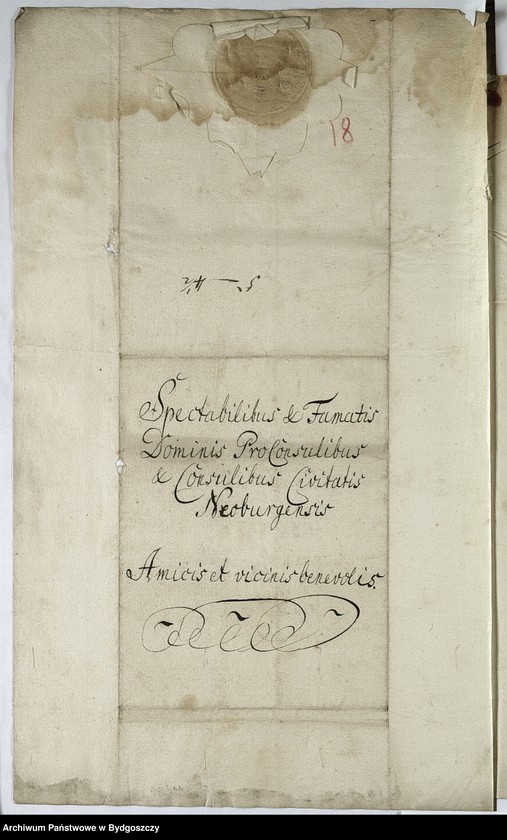 18
Spectabilibus & Famatis
Dominis ProConsulibus
& Consulibus Civitatis
Neoburgensis
Amicis et vicinis benevolis.
Archiwum Państwowe w Bydgoszczy